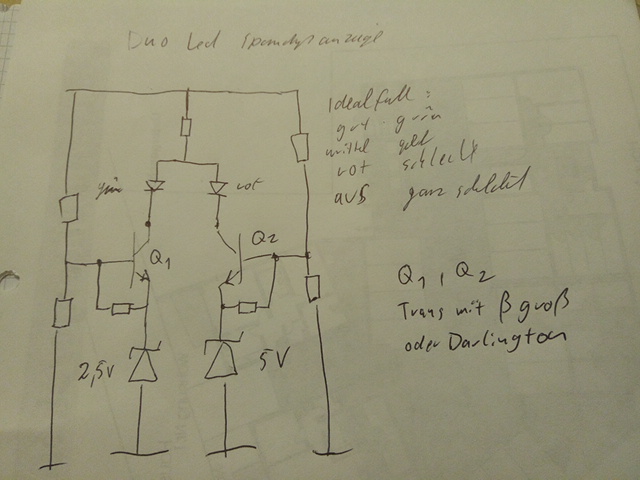 Duo Led Spannungsanzeige
Idealfall:
gut - grün
mittel gelb
rot schlecht
aus ganz schlecht
grün rot
Q1 Q2
Q1, Q2
Trans mit β groß
oder Darlington
2,5V 5V